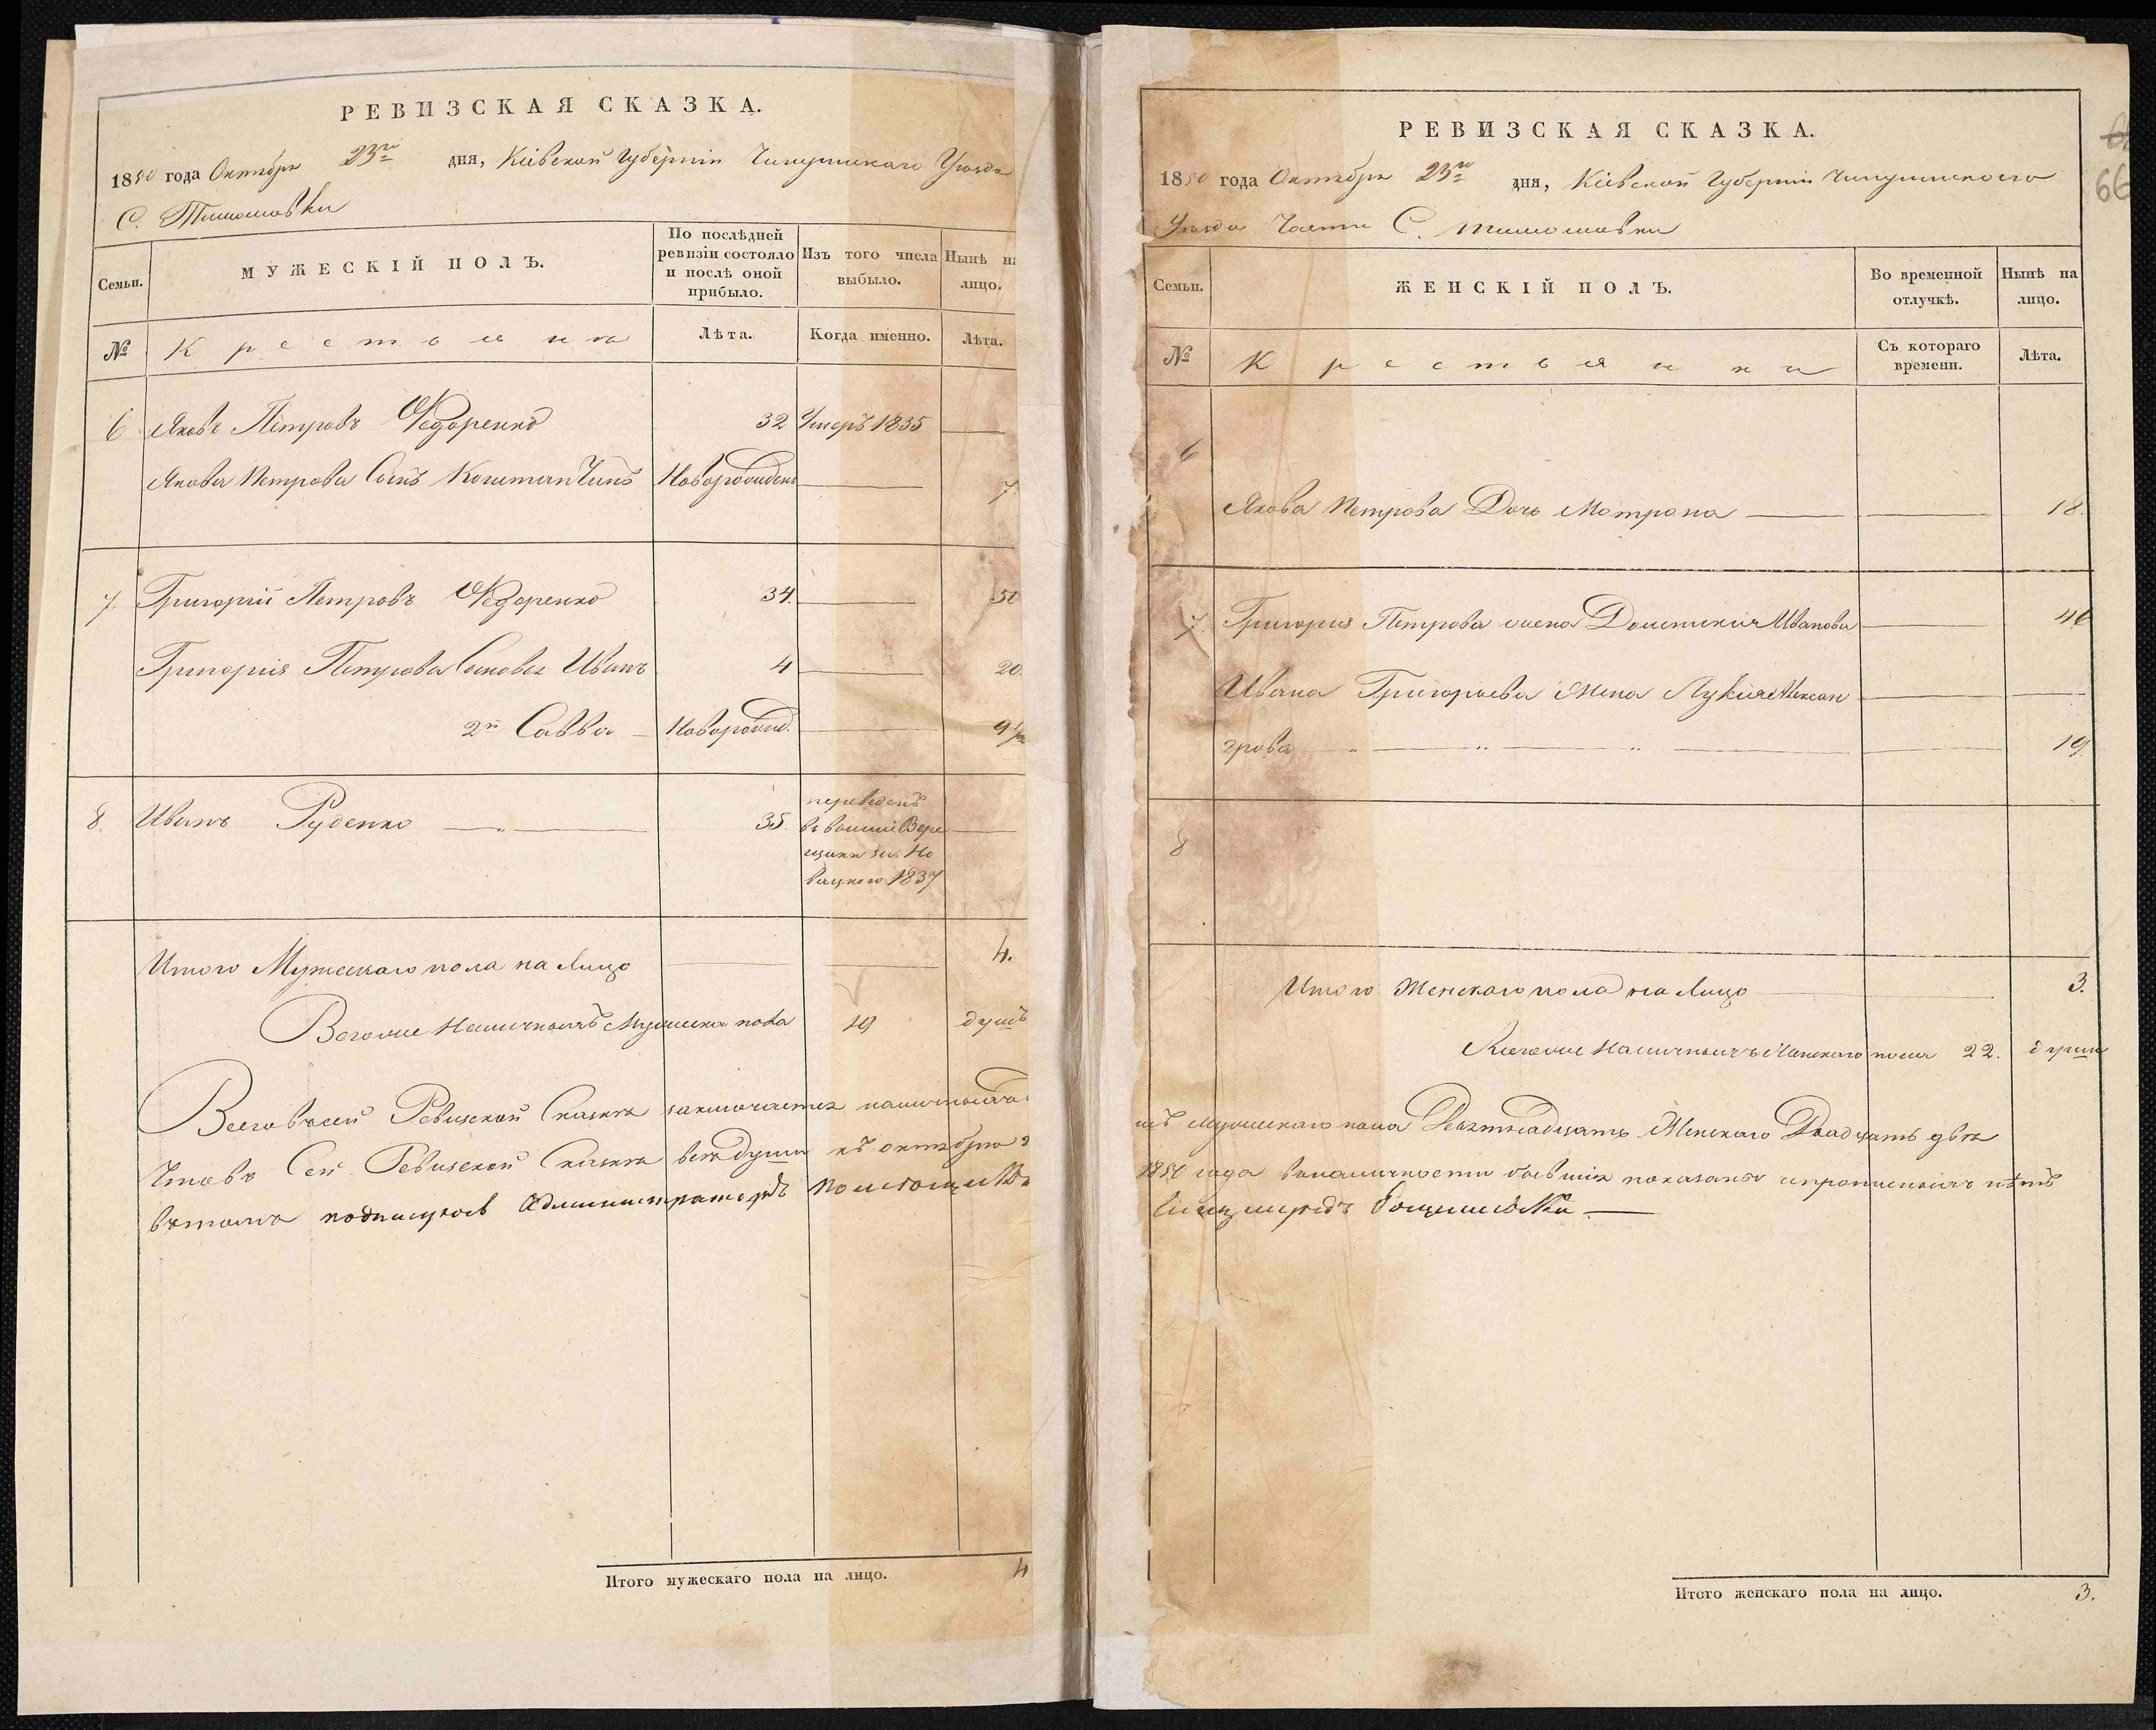 РЕВИЗСКАЯ СКАЗКА.
1850 года Октября 23го дня, Кіевской Губерніи Чигиринскаго Уѣзда
С. Тимошовки
Семьи.
МУЖЕСКІЙ ПОЛЪ.
По послѣдней ревизіи состояло и послѣ оной прибыло.
Изъ того числа выбыло.
Нынѣ на лицо.
№
Крестьяне
Лѣта.
Когда именно.
Лѣта.
6 Яковъ Петровъ Федоренко 32 Умеръ 1835
Якова Петрова Сынъ Константинъ Новорожден 7
7. Григорій Петровъ Федоренко 34. 50
Григорія Петрова Сыновья Иванъ 4 20.
2й Савва Новорожд. 9 1/2
8. Иванъ Руденко 35. переведенъ
въ
1837
Итого Мужескаго пола на лицо 4.
Всего же Наличныхъ Мужеска пола 19 душъ
Всего в сей Ревизской Сказкѣ заключается наличныхъ
Что въ Сей Ревизской Сказкѣ всѣ души къ октябрю
в томъ подписуюсь Администраторъ
Итого мужескаго пола на лицо. 4
66
РЕВИЗСКАЯ СКАЗКА.
1850 года Октября 23го дня, Кіевской Губерніи Чигиринскаго
Уѣзда Части С. Тимошовки
Семьи.
ЖЕНСКІЙ ПОЛЪ.
Во временной отлучкѣ.
Нынѣ на лицо.
№
Крестьянки
Съ котораго времени.
Лѣта.
6
Якова Петрова Дочь Мотрона 18.
7. Григорія Петрова жена Домникія Иванова 46
Ивана Григорьева Жена Лукія Алексан
дрова 19.
8
Итого Женскаго пола на лицо 3.
Всего же Наличныхъ Женскаго пола 22. души
Мужескаго пола Девятнадцать Женскаго Двадцать две
1850 года в наличности бывшія показаны и прописныхъ нѣтъ
Итого женскаго пола на лицо. 3.